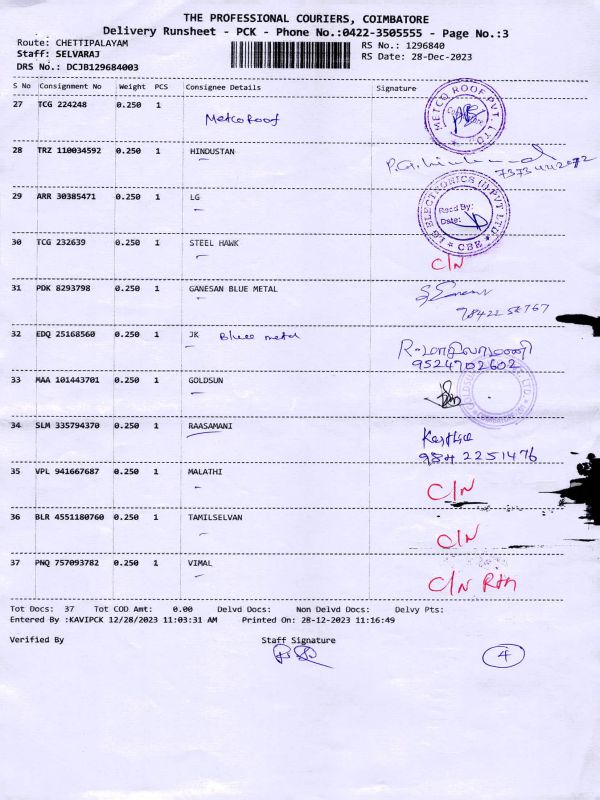 THE PROFESSIONAL COURIERS, COIMBATORE
Delivery Runsheet - PCK - Phone No.:0422-3505555 - Page No.:3
Route: CHETTIPALAYAM
Staff: SELVARAJ
DRS No.: DCJB129684003
RS No.: 1296840
RS Date: 28-Dec-2023
S No Consignment No Weight PCS Consignee Details Signature
27 TCG 224248 0.250 1 Metco Roof METCO ROOF PVT. LTD.
28 TRZ 110034592 0.250 1 HINDUSTAN
29 ARR 30385471 0.250 1 LG LG ELECTRONICS (I) PVT LTD Recd By: Date: CBE
30 TCG 232639 0.250 1 STEEL HAWK C/N
31 PDK 8293798 0.250 1 GANESAN BLUE METAL
32 EDQ 25168560 0.250 1 JK Blue metal R-மாதிலாமணி
9524702602
33 MAA 101443701 0.250 1 GOLDSUN
34 SLM 335794370 0.250 1 RAASAMANI
9842251476
35 VPL 941667687 0.250 1 MALATHI C/N
36 BLR 4551180760 0.250 1 TAMILSELVAN C/N
37 PNQ 757093782 0.250 1 VIMAL C/N Rtn
Tot Docs: 37 Tot COD Amt: 0.00 Delvd Docs: Non Delvd Docs: Delvy Pts:
Entered By :KAVIPCK 12/28/2023 11:03:31 AM Printed On: 28-12-2023 11:16:49
Verified By Staff Signature
4